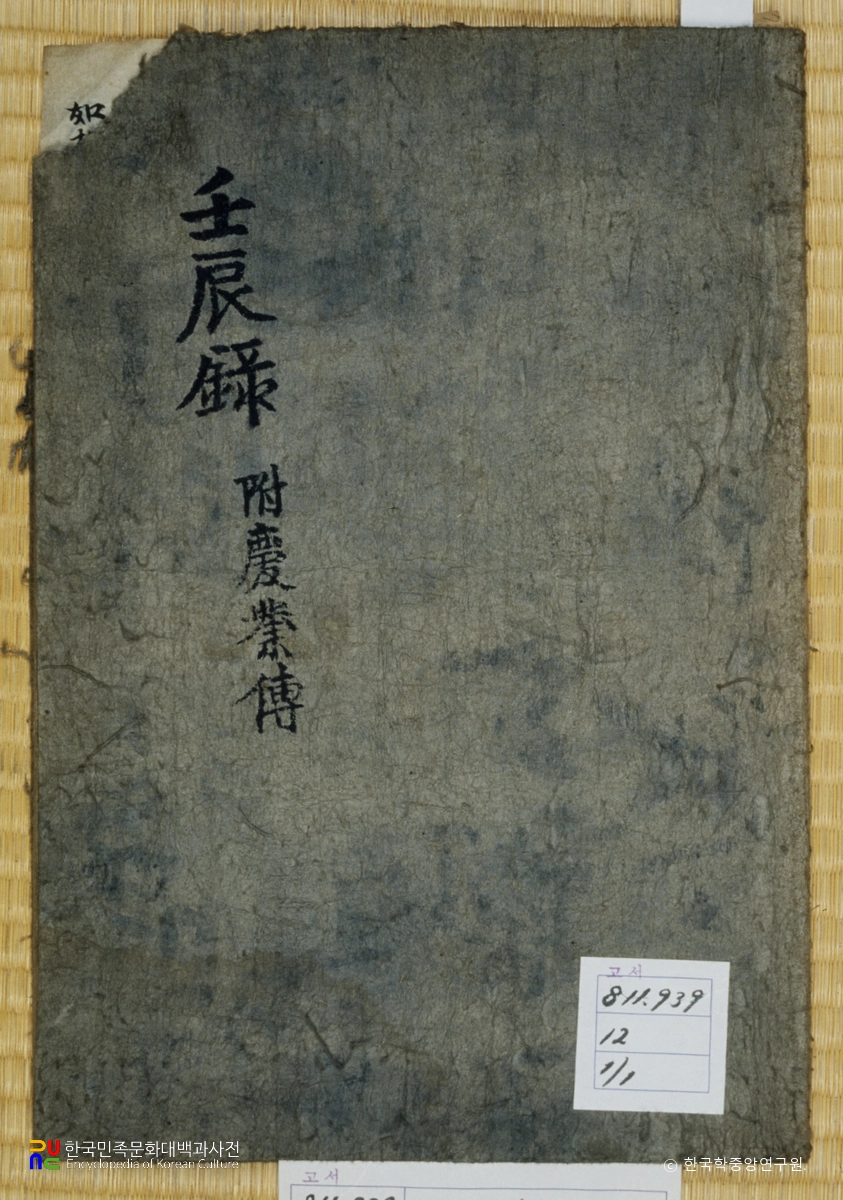 如
壬辰錄
附慶業傳
고서
811.939
12
1/1
한국민족문화대백과사전
Encyclopedia of Korean Culture
© 한국학중앙연구원
고서